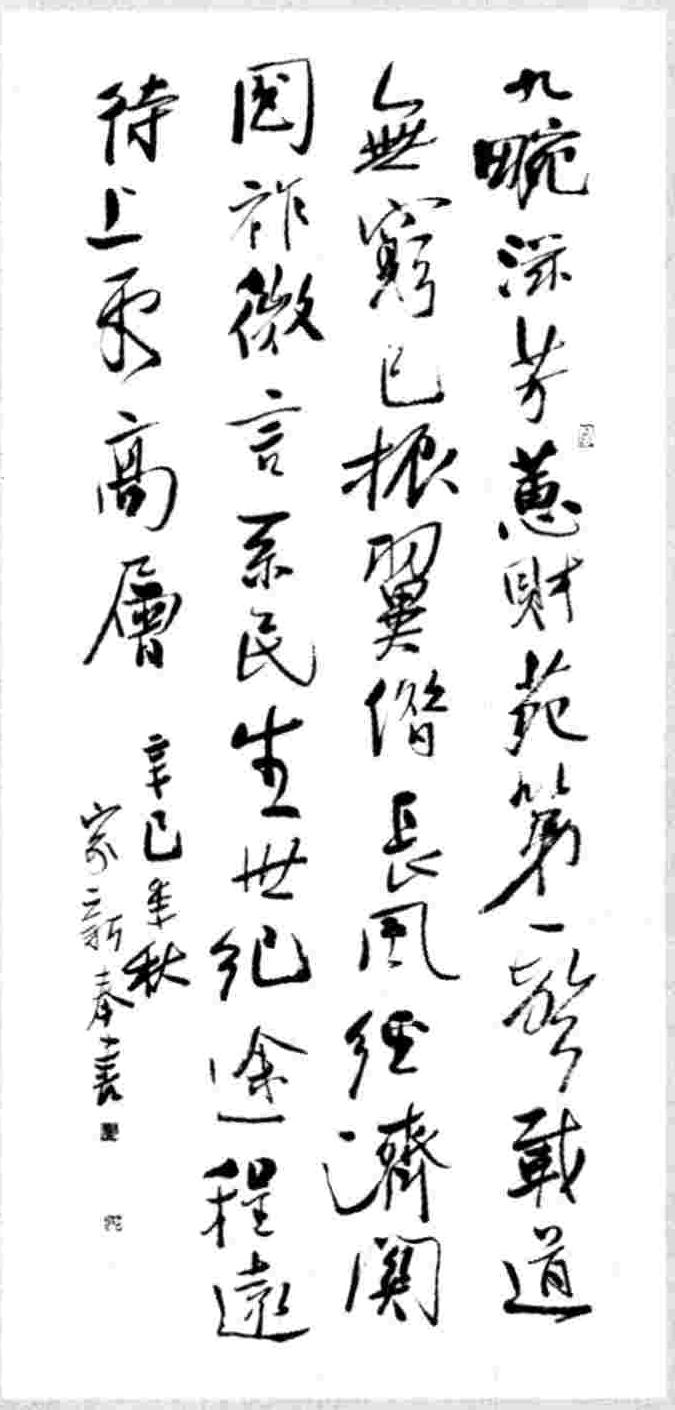 九畹芳蕙財苑第一載道
無窮已振翼偕長風經濟關
國祚微言系民生世紀途程遠
待上更高層
辛巳年秋
家新奉書